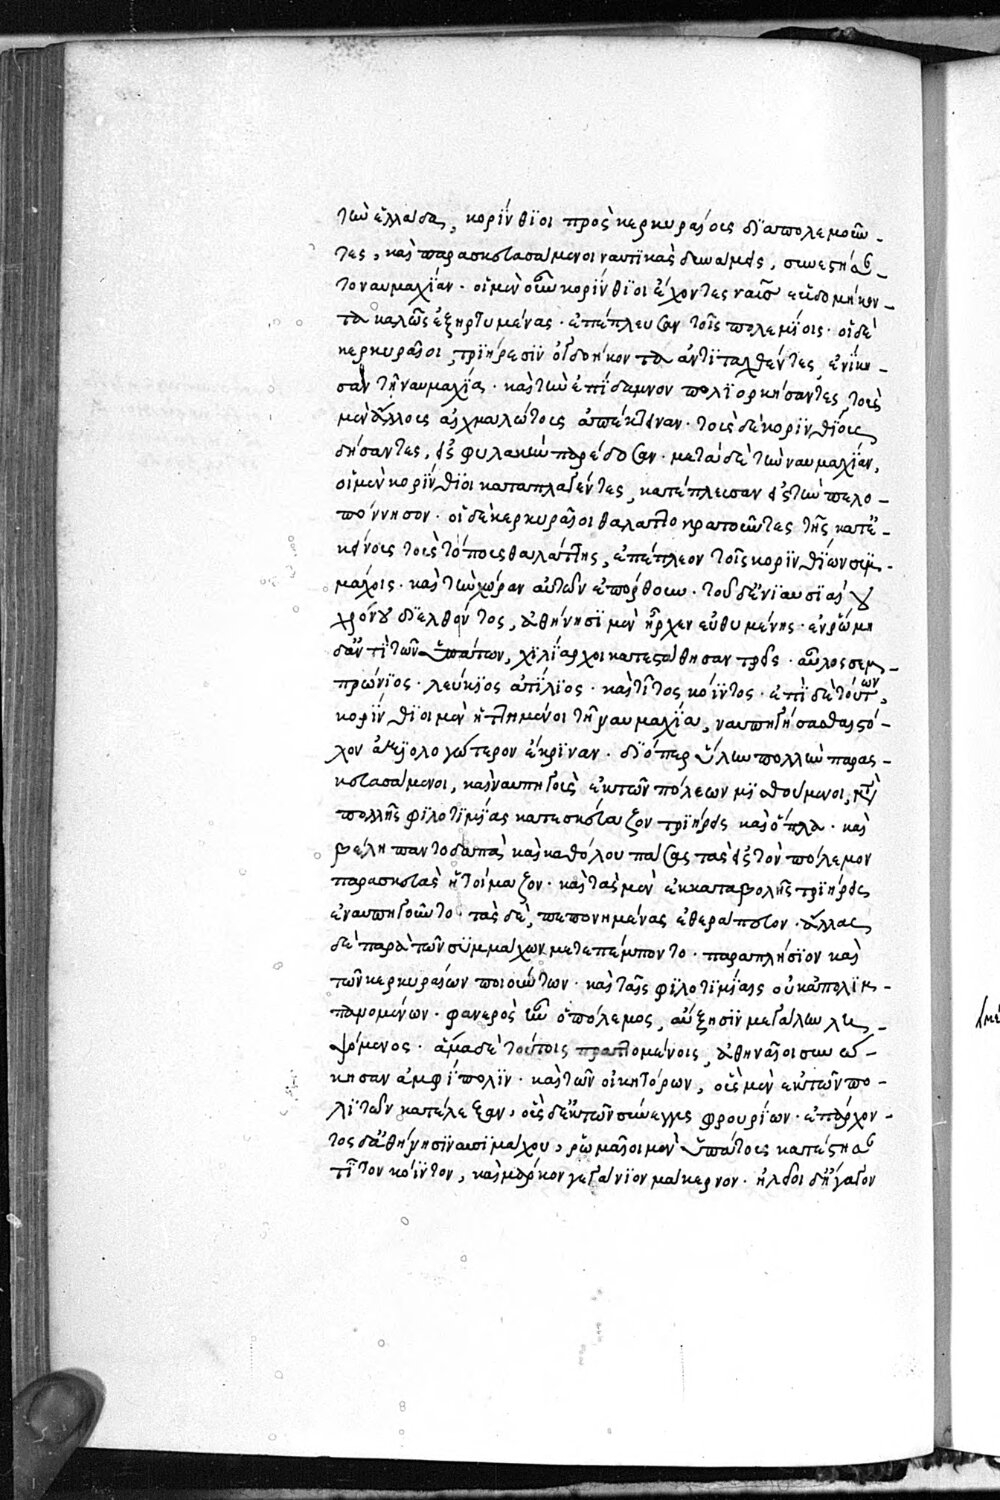 τὴν ἑλλάδα, κορίνθϊοι πρὸς κερκυραίους δϊαπολεμοῦν-
τες, καὶ παρασκευασάμενοι ναυτικὰς δυνάμεις, συνεστήσαν-
το ναυμαχΐαν· οἱ μὲν οὖν κορίνθϊοι ἔχοντες ναῦς ἑβδομήκον-
τα καλῶς ἐξηρτυμένας· ἐπέπλευσαν τοῖς πολεμΐοις· οἱ δὲ
κερκυραῖοι τρϊήρεσϊν ὀγδοήκοντα ἀντϊταχθέντες, ἐνίκη-
σαν τῆ ναυμαχΐα· καὶ τὴν ἐπΐδαμνον πολϊορκήσαντες, τοὺς
μὲν ἄλλους αἰχμαλώτους ἀπέκτειναν· τοὺς δὲ κορινθΐους
δήσαντες, εἰς φυλακὴν παρέδοσαν· μετὰ δὲ τὴν ναυμαχΐαν,
οἱ μὲν κορΐνθϊοι καταπλαγέντες, κατέπλευσαν εἰς τὴν πελο-
πόννησον· οἱ δὲ κερκυραῖοι θαλαττοκρατοῦντες τῆς κατ' ἐ-
κείνους τοὺς τόπους θαλάττης, ἐπέπλεον τοῖς κορϊνθΐων συμ-
μάχοις· καὶ τὴν χώραν αὐτῶν ἐπόρθουν· τοῦ δ' ἐνϊαυσϊαίου
χρόνου δϊελθόντος, ἀθήνησϊ μὲν ἦρχεν εὐθυμένης· ἐν ῥώμη
δ' ἀντὶ τῶν ὑπάτων, χϊλΐαρχοι κατεστάθησαν τρεῖς· αὖλος σεμ-
πρώνϊος· λεύκϊος ἀτΐλϊος· καὶ τΐτος κόϊντος· ἐπὶ δὲ τούτων,
κορΐνθϊοι μὲν ἡττημένοι τῆ ναυμαχΐα, ναυπηγήσασθαι στό-
λον ἀξϊολογώτερον ἔκρϊναν· δϊόπερ ὕλην πολλὴν παρασ-
κευασάμενοι, καὶ ναυπηγοὺς ἐκ τῶν πόλεων μϊσθούμενοι, μετὰ
πολλῆς φϊλοτϊμΐας κατεσκεύαζον τρϊήρεις καὶ ὅπλα· καὶ
βέλη παντοδαπὰ καὶ καθόλου πάσας τὰς εἰς τὸν πόλεμον
παρασκευὰς ἡτοίμαζον· καὶ τὰς μὲν ἐκ καταβολῆς τρϊήρεις
ἐναυπηγοῦντο· τὰς δὲ, πεπονημένας ἐθεράπευον· ἄλλας
δὲ παρὰ τῶν συμμάχων μετεπέμποντο· παραπλήσϊον καὶ
τῶν κερκυραίων ποιούντων· καὶ ταῖς φϊλοτϊμΐαις οὐκ ἀπολϊμ-
πανομένων· φανερὸς ἦν ὁ πόλεμος, αὔξησϊν μεγάλην λη-
ψόμενος· ἅμα δὲ τούτοις πραττομένοις, ἀθηναῖοι συνώ-
κησαν ἀμφΐπολϊν· καὶ τῶν οἰκητόρων, οὓς μὲν ἐκ τῶν πο-
λϊτῶν κατέλεξαν, οὓς δ' ἐκ τῶν σύνεγγυς φρουρΐων· ἐπ' ἄρχον-
τος δ' ἀθήνησϊν αυσϊμάχου, ῥωμαῖοι μὲν ὑπάτους κατέστησαν
τΐτον κόϊντον, καὶ μάρκον γεγάνϊον μάκερνον· ἠλεῖοι δ' ἤγαγον